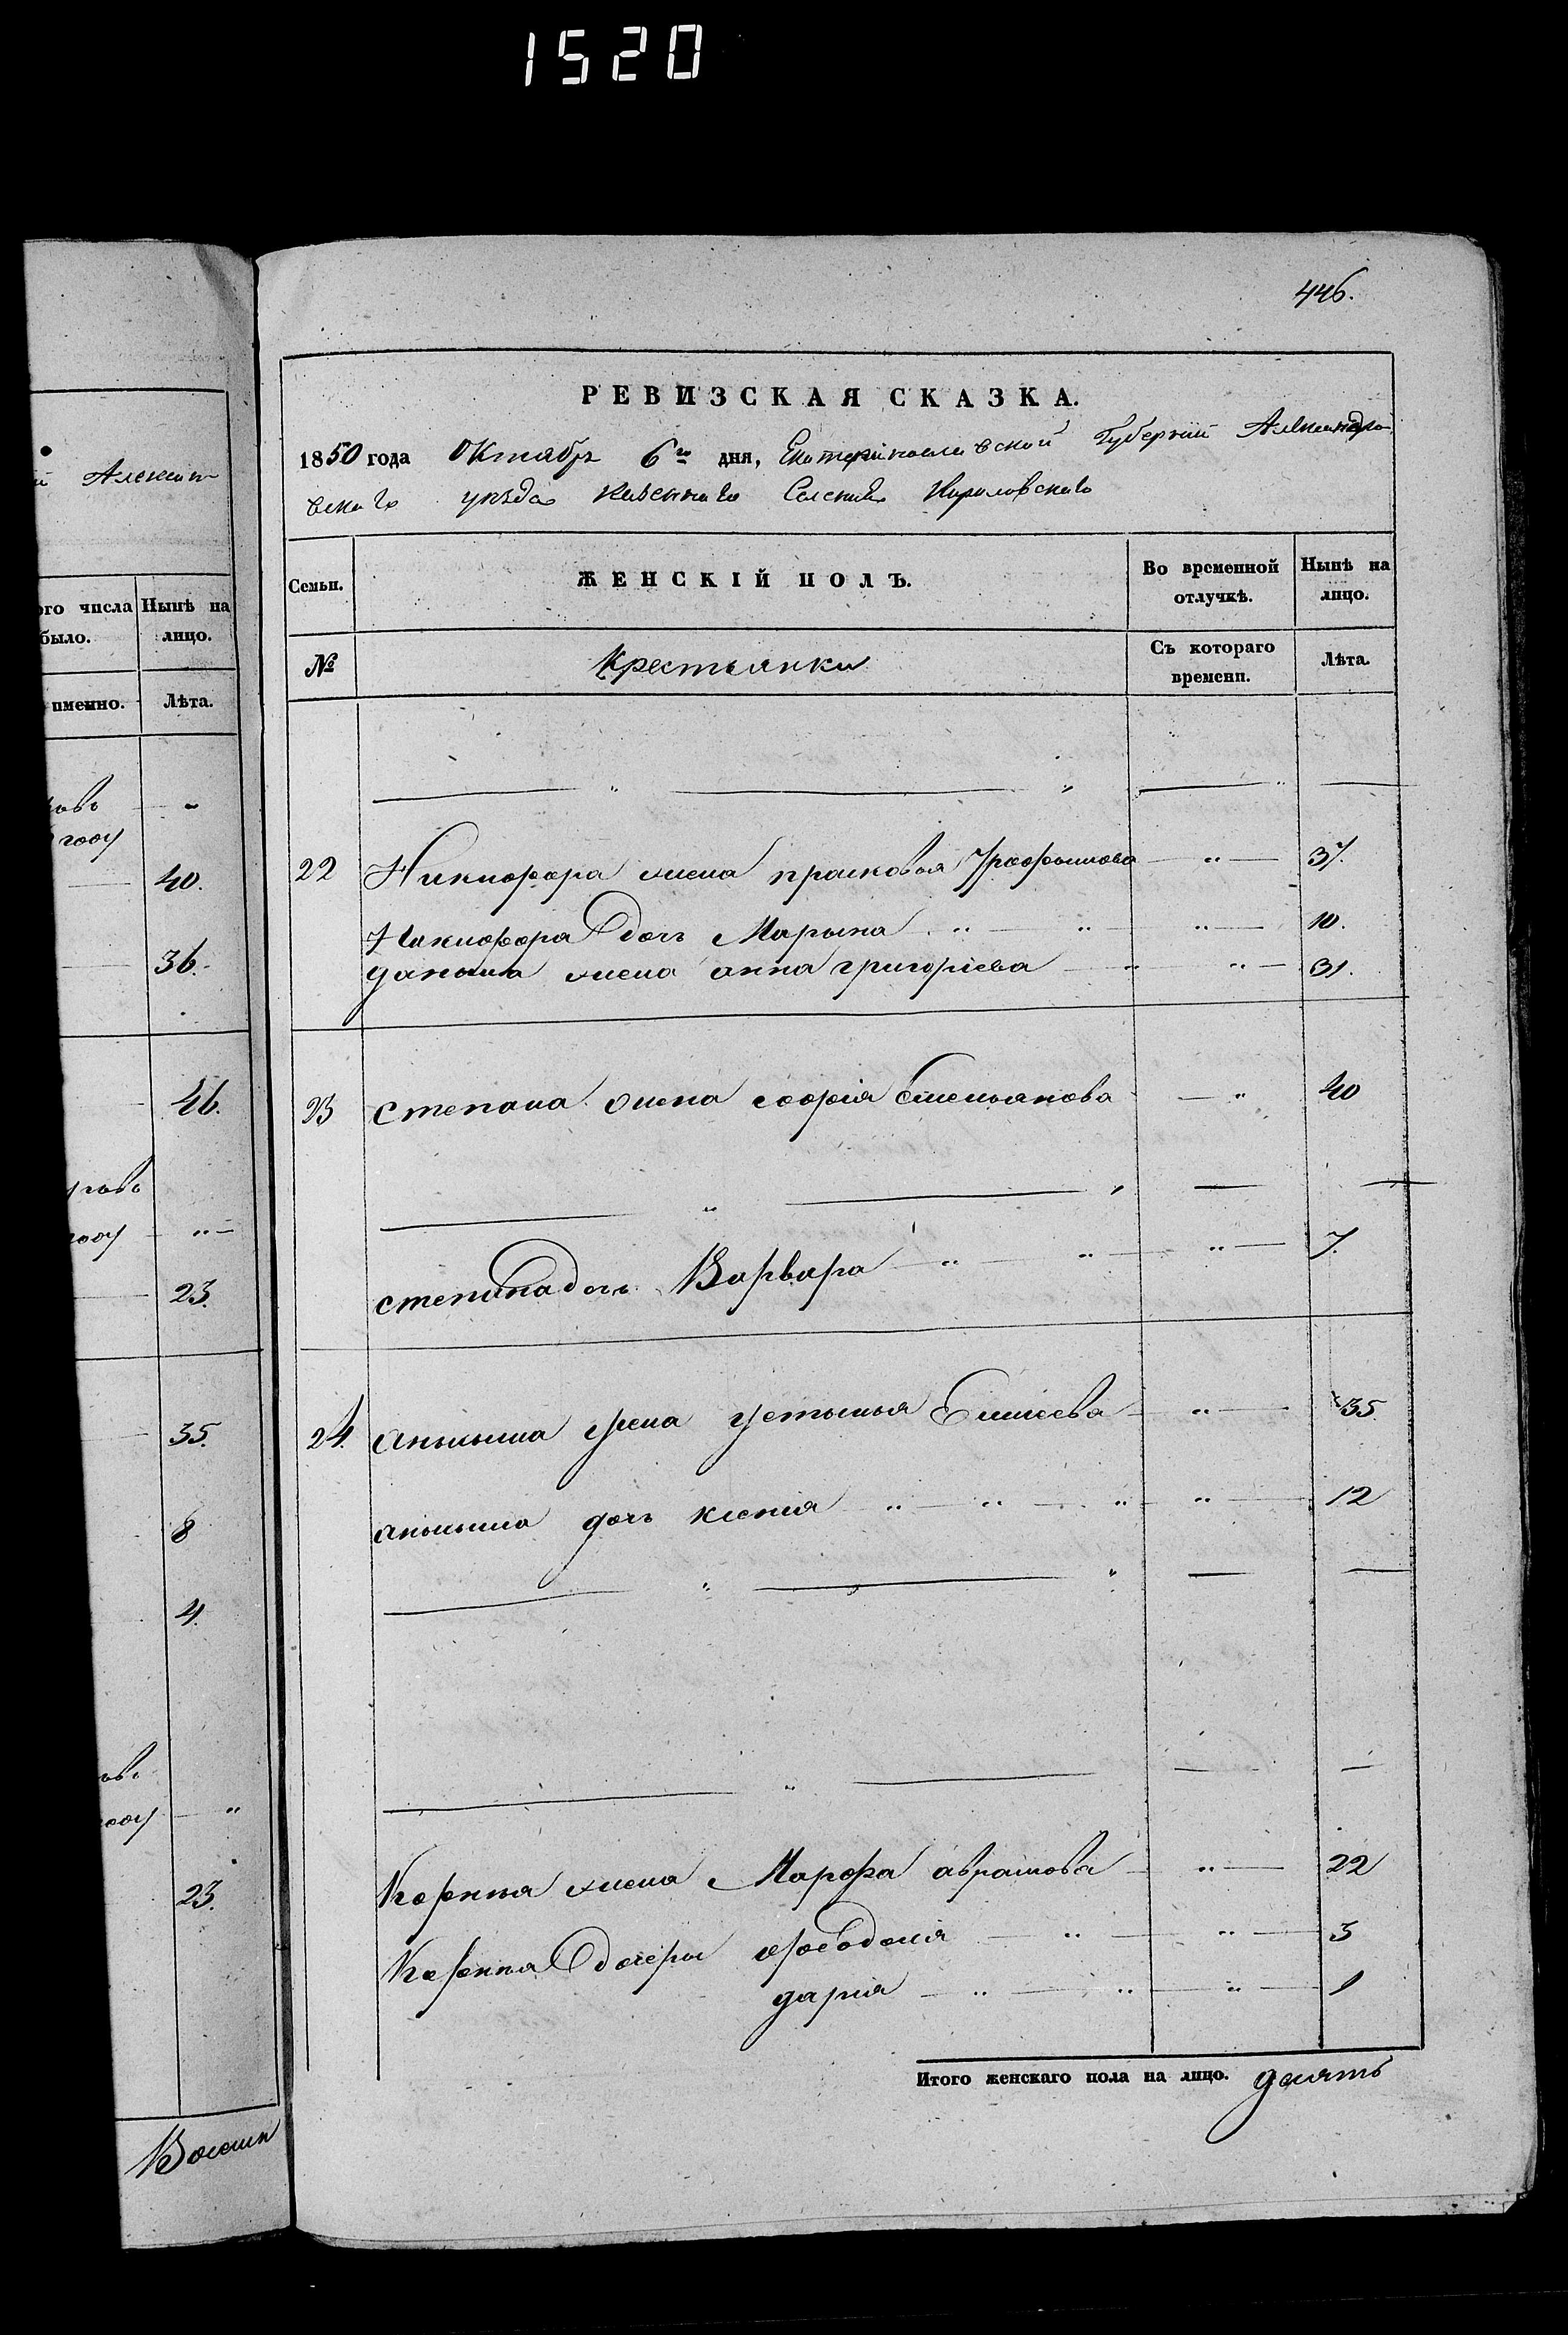 1520
446.
РЕВИЗСКАЯ СКАЗКА.
1850 года Октября 6го дня, Екатеринославской Губернии Александро
вскаго уезда казеннаго Селения Кириловскаго
Семьи. ЖЕНСКІЙ ПОЛЪ. Во временной отлучкѣ. Нынѣ на лицо.
№ Крестьянки Съ котораго времени. Лѣта.
22 Никифора жена прасковья Трофимова „ 37.
Никифора дочь Марына „ „ „ 10.
данила жена анна григорiева „ „ 31.
23 степана жена софiя Емельянова „ 40
степана дочь Варвара „ „ „ 7.
24. аникия жена устинья Елисеева „ 35.
аникия дочь ксенiя „ „ „ „ 12
Корнея жена Марфа аврамова „ 22
Корнея дочери феодосiя „ „ 3
дарiя „ „ „ 1
Итого женскаго пола на лицо. десять
Алексан
ого числа было. Нынѣ на лицо.
именно. Лѣта.
году
40.
36.
46.
году „
23.
35.
8
4.
году „
23.
Восемь